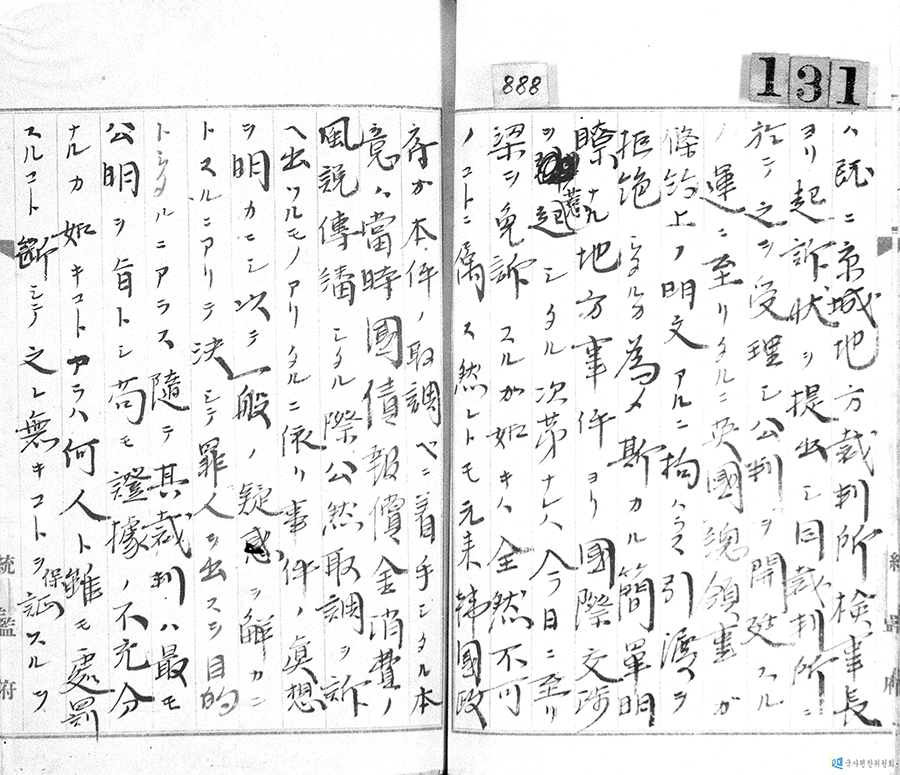 888
131
ハ既ニ京城地方裁判所檢事長
ヨリ起訴狀ヲ提出シ同裁判所ニ
於テ之ヲ受理シ公判ヲ開廷スル
ノ運ニ至リタルニ英國總領事ガ
條約上ノ明文アルニ拘ハラス引渡ヲ
拒絶シタルカ為メ斯カル簡單明
瞭ナル地方事件ヨリ國際交渉
ヲ惹起シタル次第ナレハ今日ニ至リ
梁ヲ免訴スルカ如キハ全然不可
ノコトニ属ス然レトモ元来韓國政
府カ本件ノ取調ベニ着手シタル本
意ハ當時國債報償金消費ノ
風説傳播シタル際公然取調ヲ訴
ヘ出ツルモノアリタルニ依リ事件ノ真想
ヲ明カニシ以テ一般ノ疑惑ヲ解カン
トスルニアリテ決シテ罪人ヲ出スヲ目的
トシタルニアラス隨テ其裁判ハ最モ
公明ヲ旨トシ苟モ證據ノ不充分
ナルカ如キコトアラハ何人ト雖モ處罰
スルコト斷シテ之レ無キコトヲ保証スルヲ
統監府
統監府
국사편찬위원회